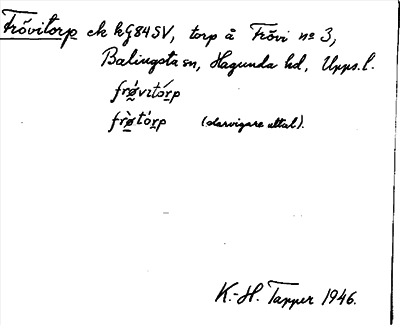 Frövitorp ek kG84SV, torp å Frövi nº 3,
Balingsta sn, Hagunda hd, Upps. l.
frø̀vıtórp
frø̀tórp (slarvigare uttal).
K.-H. Tapper 1946.